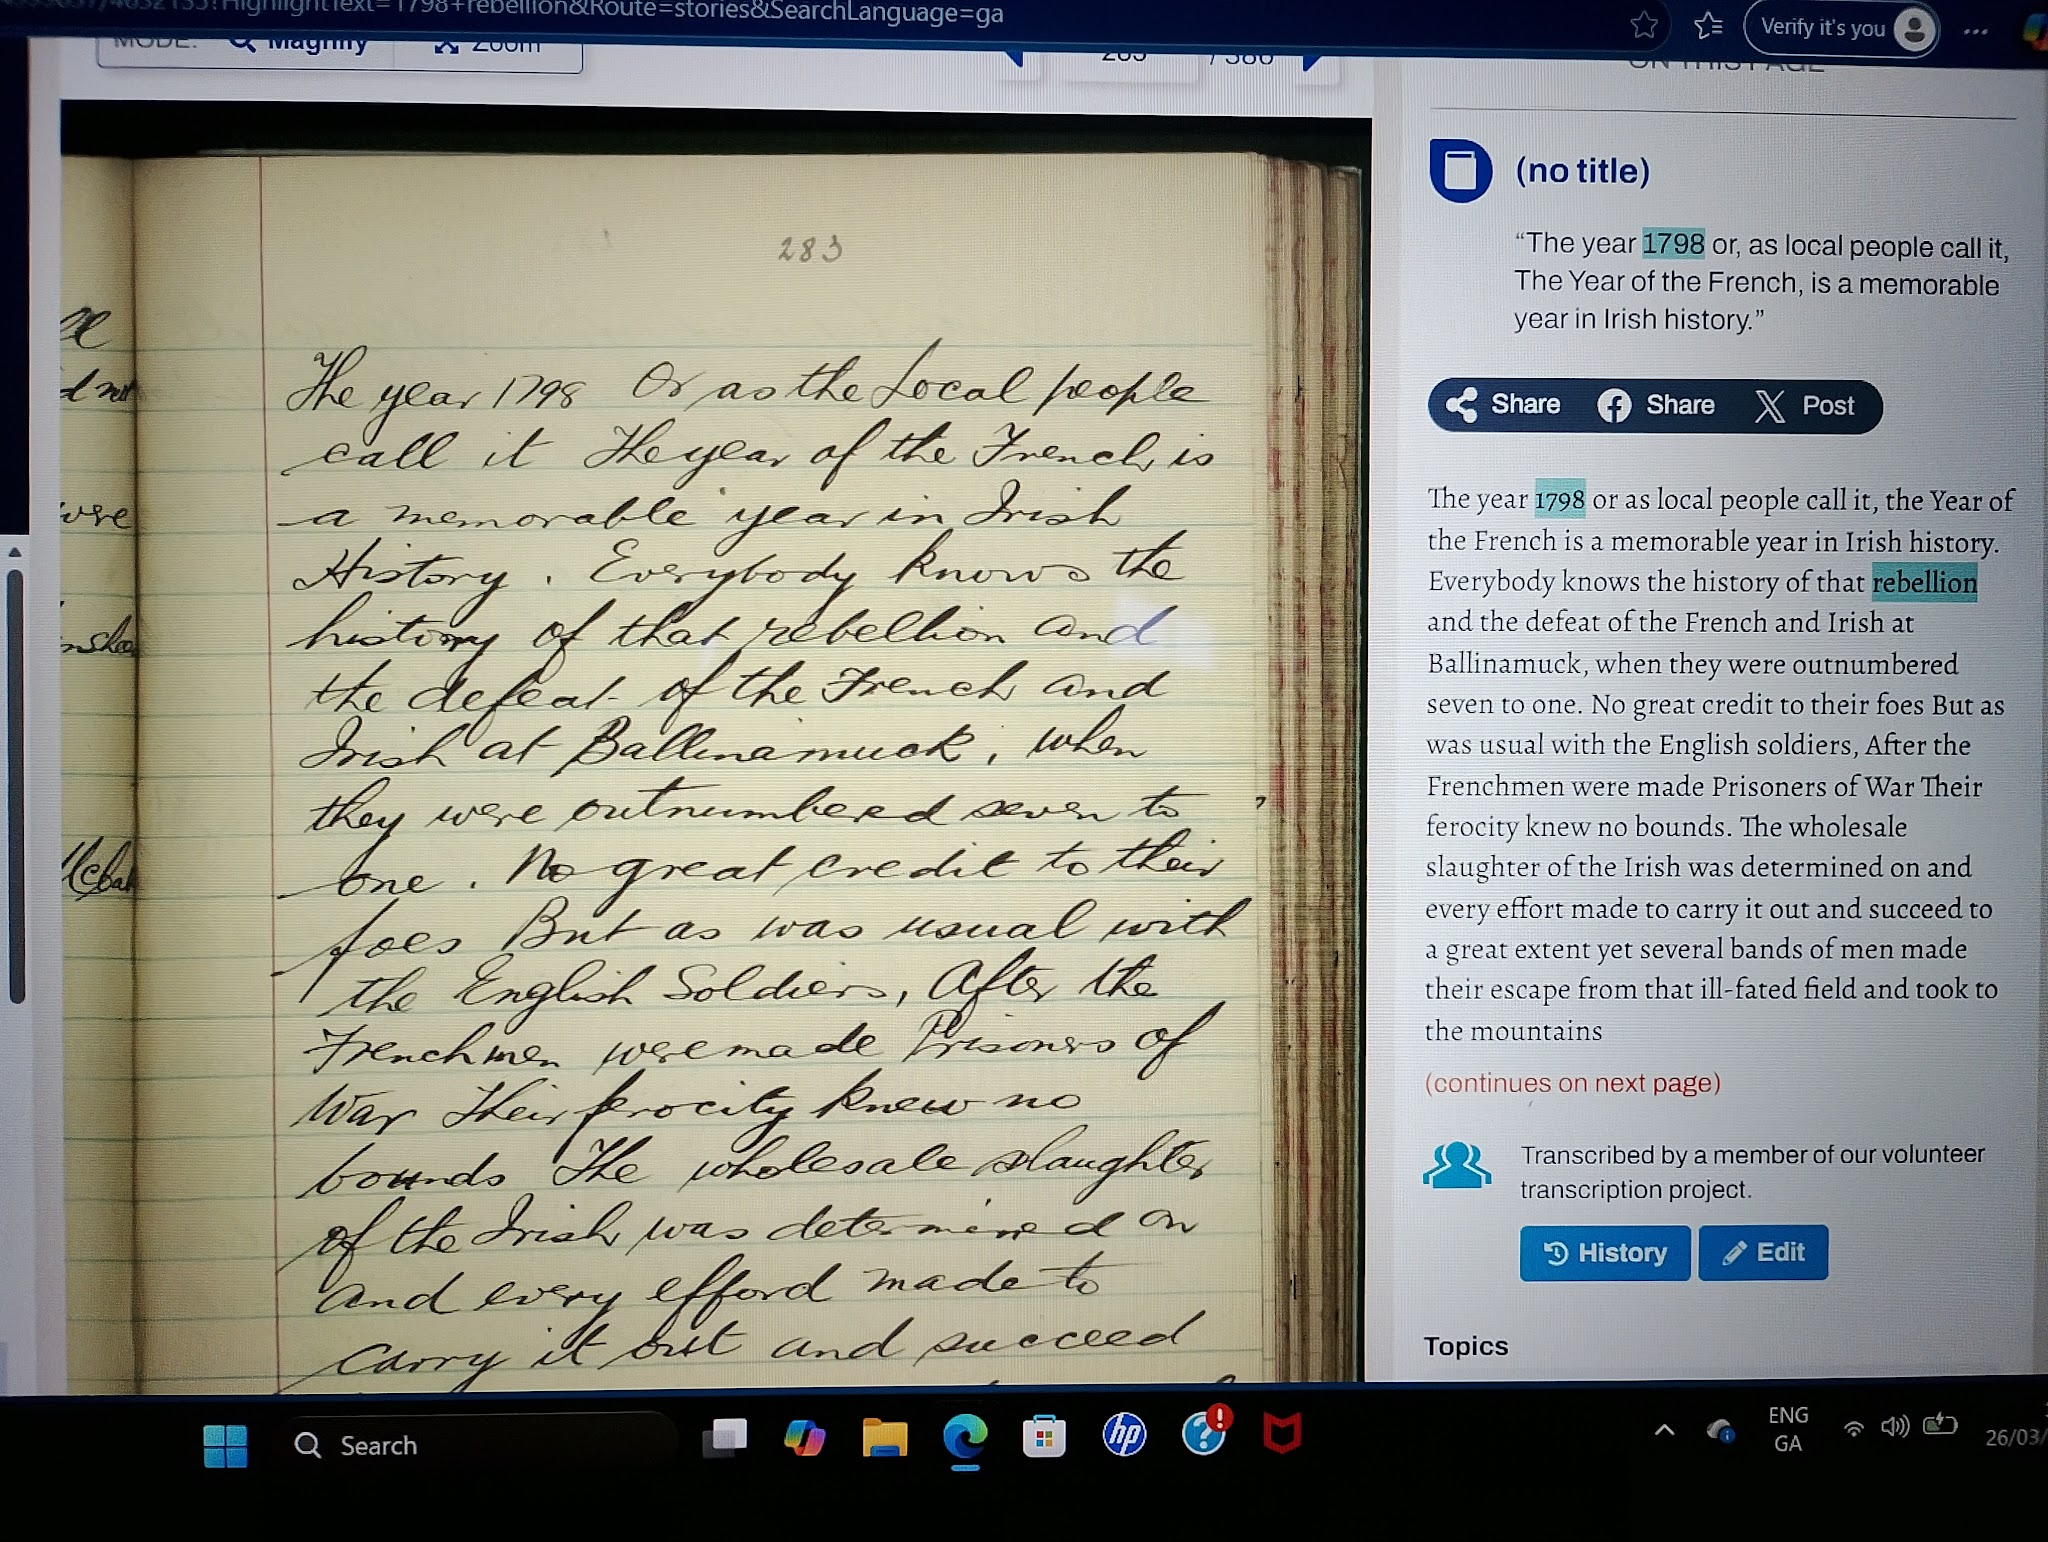 ?HighlightText=1798+rebellion&Route=stories&SearchLanguage=ga
Verify it's you
MODE: Magnify Zoom
283 / 386
ON THIS PAGE
283
The year 1798 Or as the Local people
call it The year of the French is
a memorable year in Irish
History . Everybody knows the
history of that rebellion and
the defeat of the French and
Irish at Ballinamuck, when
they were outnumbered seven to
one . No great credit to their
foes But as was usual with
the English Soldiers, After the
Frenchmen were made Prisoners of
War Their ferocity knew no
bounds The wholesale slaughter
of the Irish was determined on
and every efford made to
carry it out and succeed
d not
were
(no title)
“The year 1798 or, as local people call it,
The Year of the French, is a memorable
year in Irish history.”
Share Share Post
The year 1798 or as local people call it, the Year of
the French is a memorable year in Irish history.
Everybody knows the history of that rebellion
and the defeat of the French and Irish at
Ballinamuck, when they were outnumbered
seven to one. No great credit to their foes But as
was usual with the English soldiers, After the
Frenchmen were made Prisoners of War Their
ferocity knew no bounds. The wholesale
slaughter of the Irish was determined on and
every effort made to carry it out and succeed to
a great extent yet several bands of men made
their escape from that ill-fated field and took to
the mountains
(continues on next page)
Transcribed by a member of our volunteer
transcription project.
History Edit
Topics
Search
hp
ENG
GA
26/03/